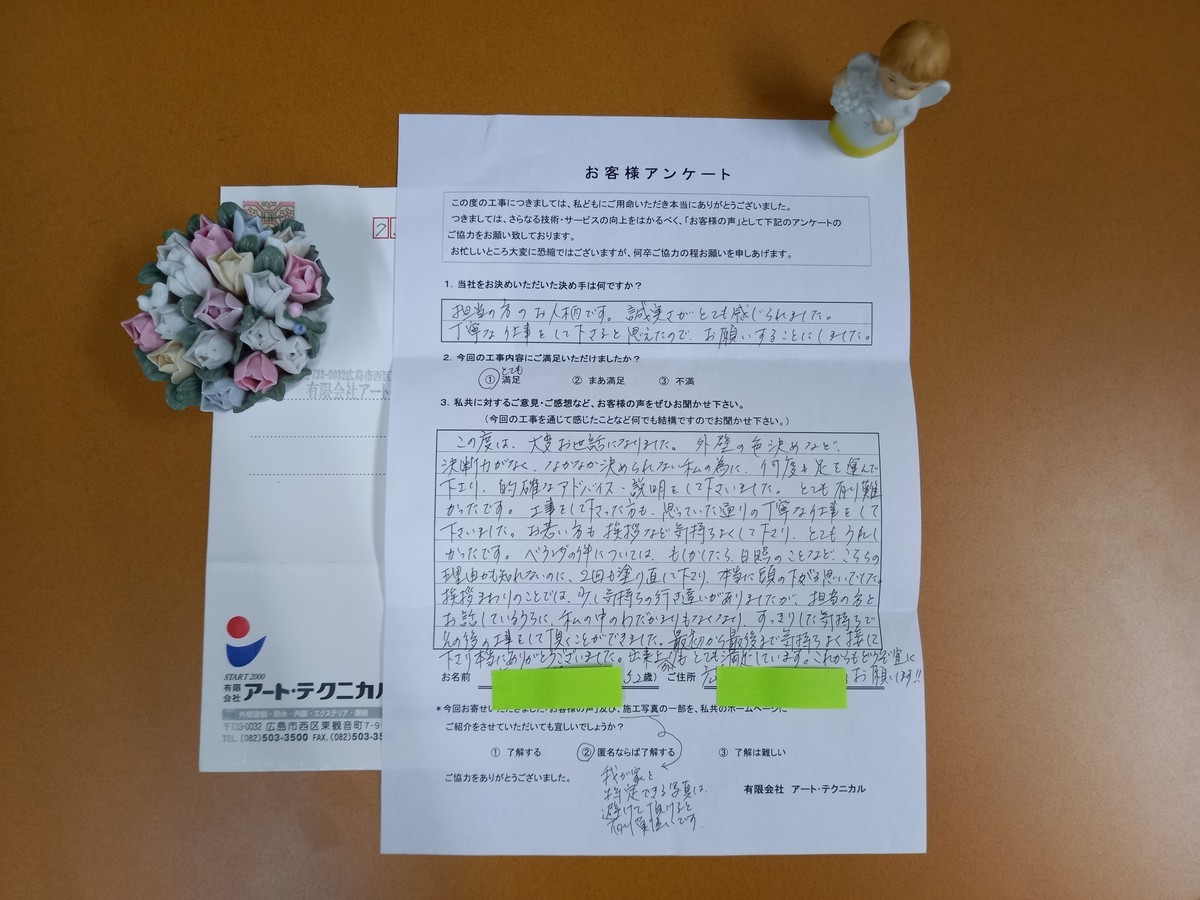 お客様アンケート
この度の工事につきましては、私どもにご用命いただき本当にありがとうございました。
つきましては、さらなる技術・サービスの向上をはかるべく、「お客様の声」として下記のアンケートの
ご協力をお願い致しております。
お忙しいところ大変に恐縮ではございますが、何卒ご協力の程お願いを申しあげます。
1. 当社をお決めいただいた決め手は何ですか?
担当の方のお人柄です。誠実さがとても感じられました。
丁寧な仕事をして下さると思えたので、お願いすることにしました。
2. 今回の工事内容にご満足いただけましたか?
とても
① 満足 ② まあ満足 ③ 不満
3. 私共に対するご意見・ご感想など、お客様の声をぜひお聞かせ下さい。
(今回の工事を通じて感じたことなど何でも結構ですのでお聞かせ下さい。)
この度は、大変お世話になりました。外壁の色決めなど、
決断力がなく、なかなか決められない私の為に、何度も足を運んで
下さり、的確なアドバイス・説明をして下さいました。とても有り難
かったです。工事をして下さった方も、思っていた通りの丁寧な仕事をして
下さいました。お若い方も挨拶など気持ちよくして下さり、とてもうれし
かったです。ベランダの件については、もしかしたら日照のことなど、こちらの
理由かも知れないのに、2回も塗り直して下さり、本当に頭の下がる思いでした。
挨拶まわりのことでは、少し気持ちの行き違いがありましたが、担当の方と
お話しているうちに、私の中のわだかまりもなくなり、すっきりした気持ちで
その後の工事をして頂くことができました。最初から最後まで気持ちよく接して
下さり本当にありがとうございました。出来上がりもとても満足しています。これからもどうぞ宜しく
お願いします!!
お名前 52歳) ご住所 広
*今回お寄せいただきました「お客様の声」及び、施工写真の一部を、私共のホームページに
ご紹介をさせていただいても宜しいでしょうか?
① 了解する ② 匿名ならば了解する ③ 了解は難しい
ご協力をありがとうございました。
我が家と
特定できる写真は
避けて頂けると
有り難いです。
有限会社 アート・テクニカル
〒733-0032広島市西区
有限会社アート
START 2000
有限会社 アート・テクニカル
外壁塗装・防水・内装・エクステリア・
〒733-0032 広島市西区東観音町7-9-
TEL. (082)503-3500 FAX. (082)503-35